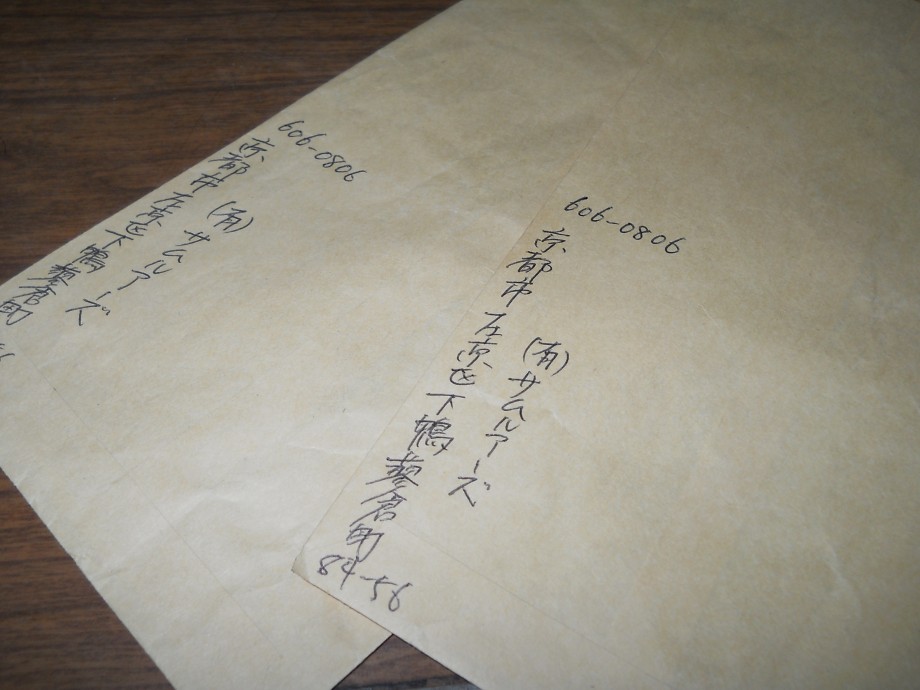 606-0806
京都市左京区下鴨蓼倉町
(有)サムルアーズ
606-0806
京都市左京区下鴨蓼倉町
84-56
(有)サムルアーズ